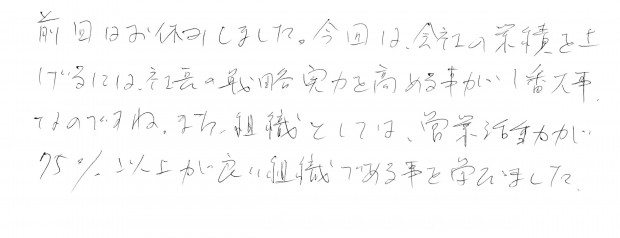 前回はお休みしました。今回は、会社の業績を上
げるには、社長の戦略実力を高める事が、1番大事
なのですね。また、組織としては、営業活動力が
75%以上が良い組織である事を学びました。